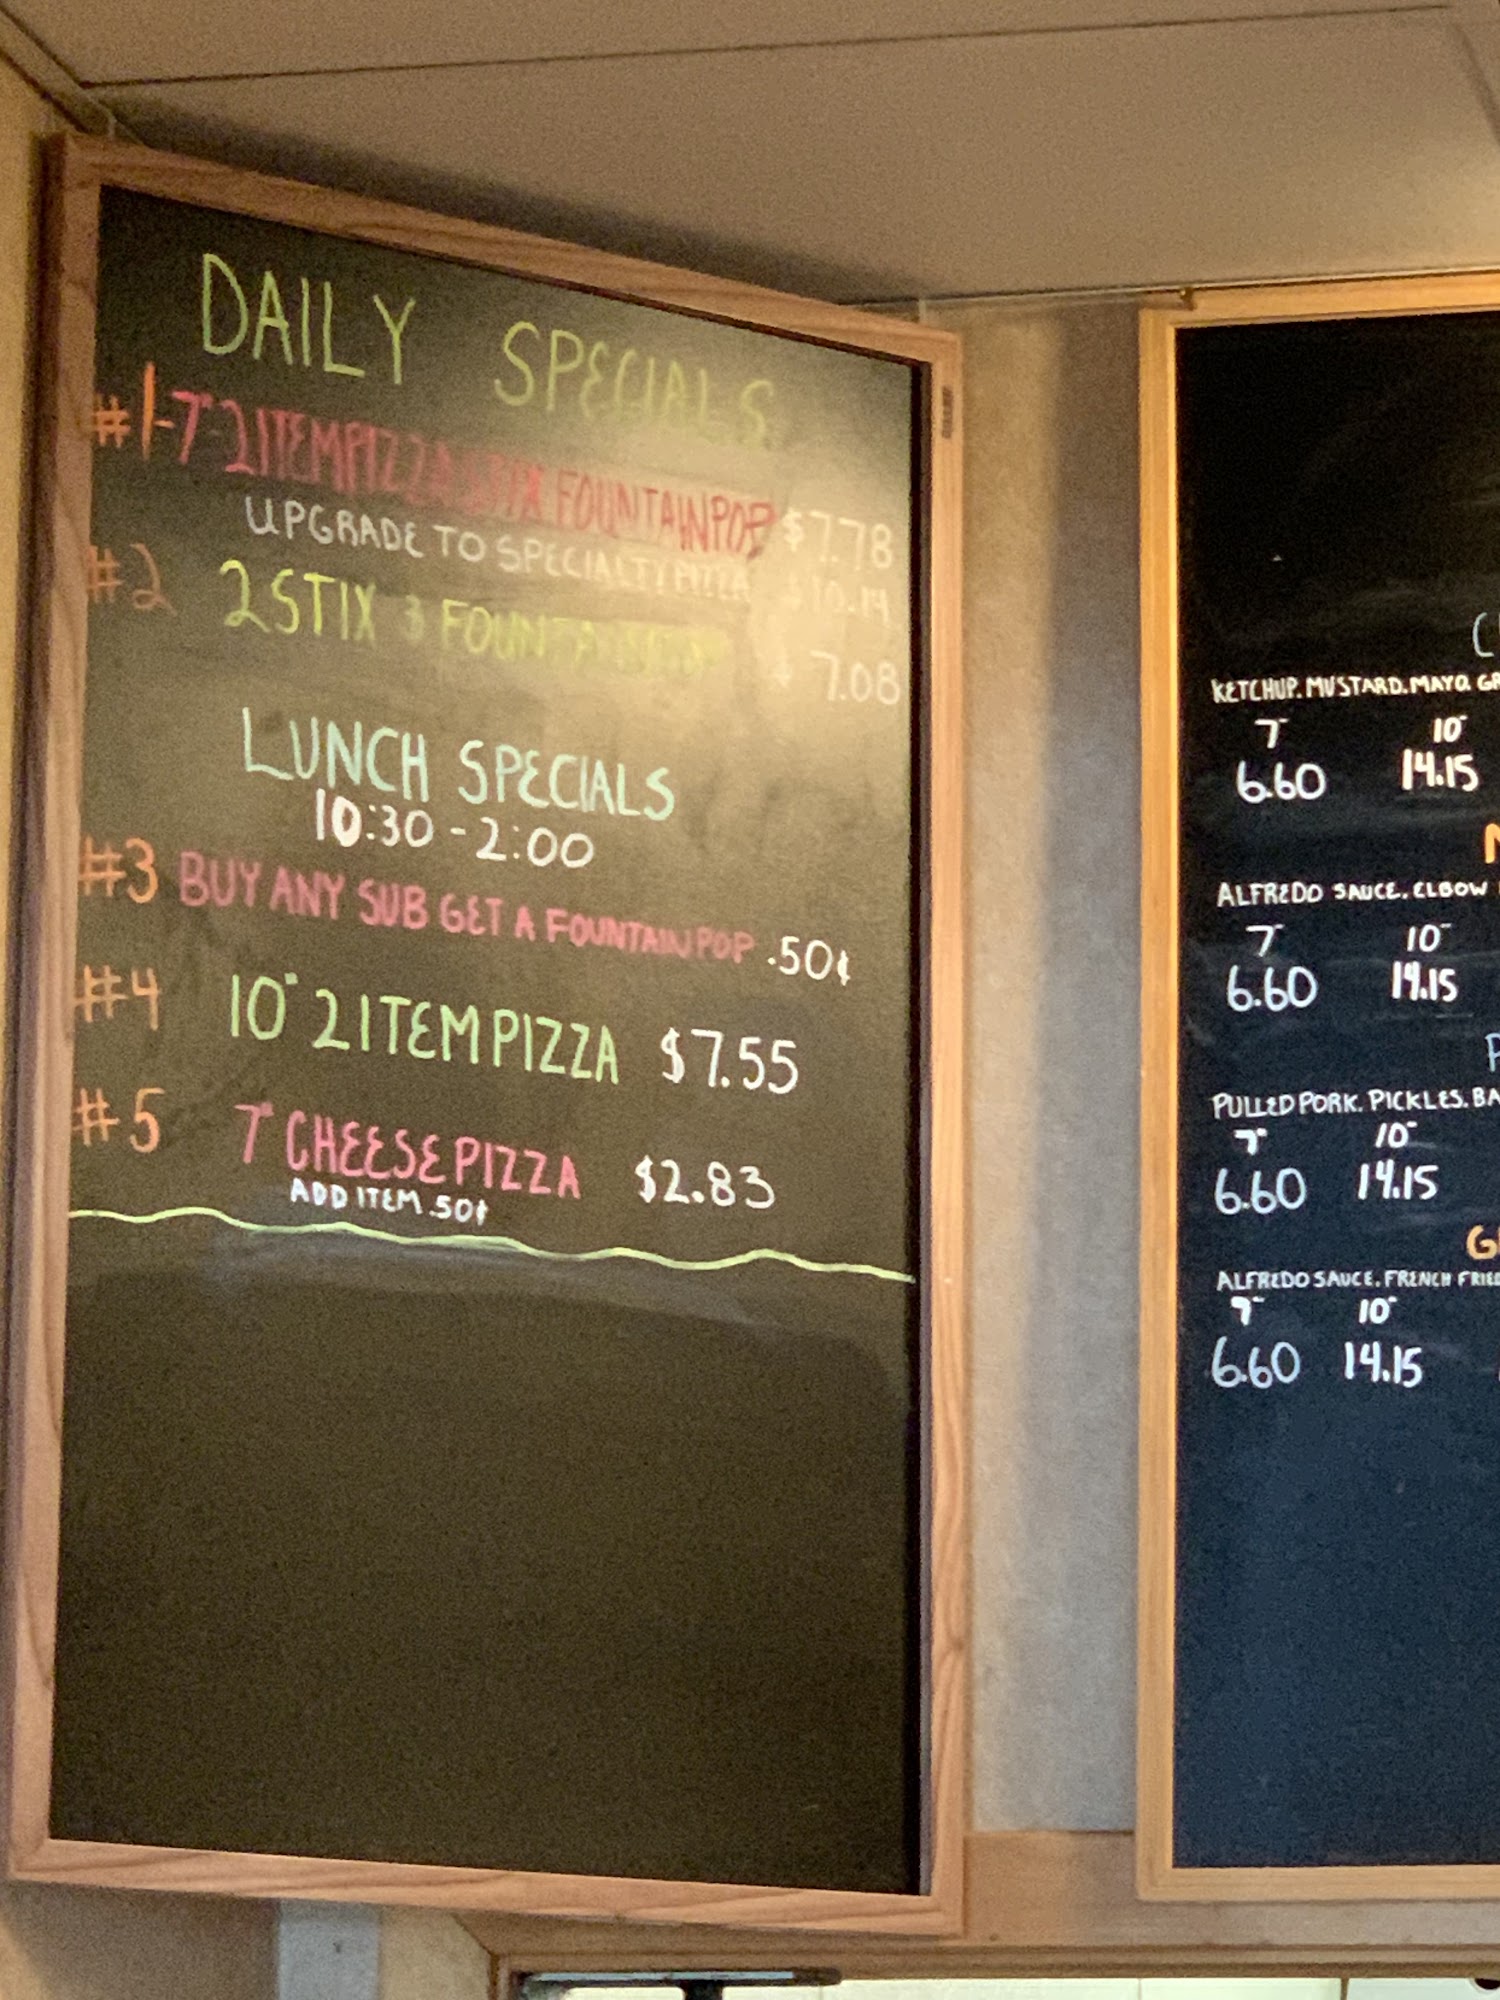 DAILY SPECIALS
#1-7" 2 ITEM PIZZA STIX FOUNTAIN POP $7.78
UPGRADE TO SPECIALTY PIZZA $10.14
#2 2 STIX & FOUNTAIN POP $7.08
LUNCH SPECIALS
10:30 - 2:00
#3 BUY ANY SUB GET A FOUNTAIN POP .50¢
#4 10" 2 ITEM PIZZA $7.55
#5 7" CHEESE PIZZA $2.83
ADD ITEM .50¢
KETCHUP. MUSTARD. MAYO.
7" 10"
6.60 14.15
ALFREDO SAUCE. ELBOW
7" 10"
6.60 14.15
PULLED PORK. PICKLES.
7" 10"
6.60 14.15
ALFREDO SAUCE. FRENCH
7" 10"
6.60 14.15